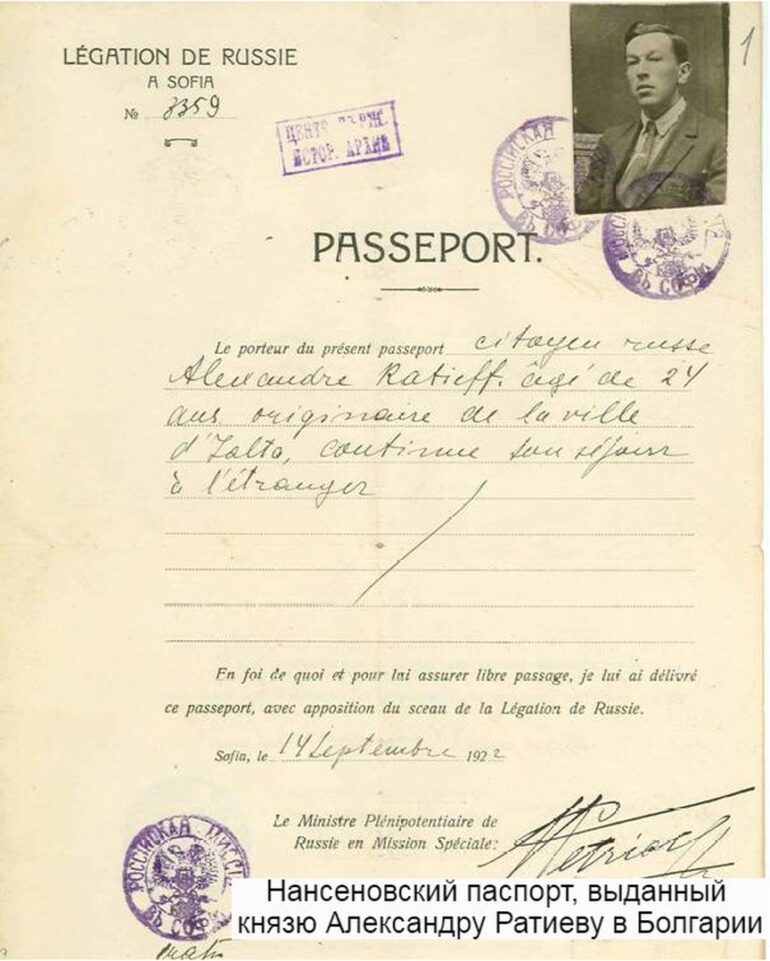 LÉGATION DE RUSSIE
A SOFIA
№ 3359
1
ЦЕНТР. ДЪРЖ.
ИСТОР. АРХИВ
РОССІЙСКАЯ
ВЪ СОФІИ
ВЪ СОФІИ
PASSEPORT.
Le porteur du présent passeport citoyen russe
Alexandre Ratieff. âgé de 24
ans originaire de la ville
d'Jalta, continue son séjour
à l'étranger
En foi de quoi et pour lui assurer libre passage, je lui ai délivré
ce passeport, avec apposition du sceau de la Légation de Russie.
Sofia, le 14 Septembre 1922
Le Ministre Plénipotentiaire de
Russie en Mission Spéciale:
РОССІЙСКАЯ МИССІЯ
ВЪ СОФІИ
Нансеновский паспорт, выданный
князю Александру Ратиеву в Болгарии